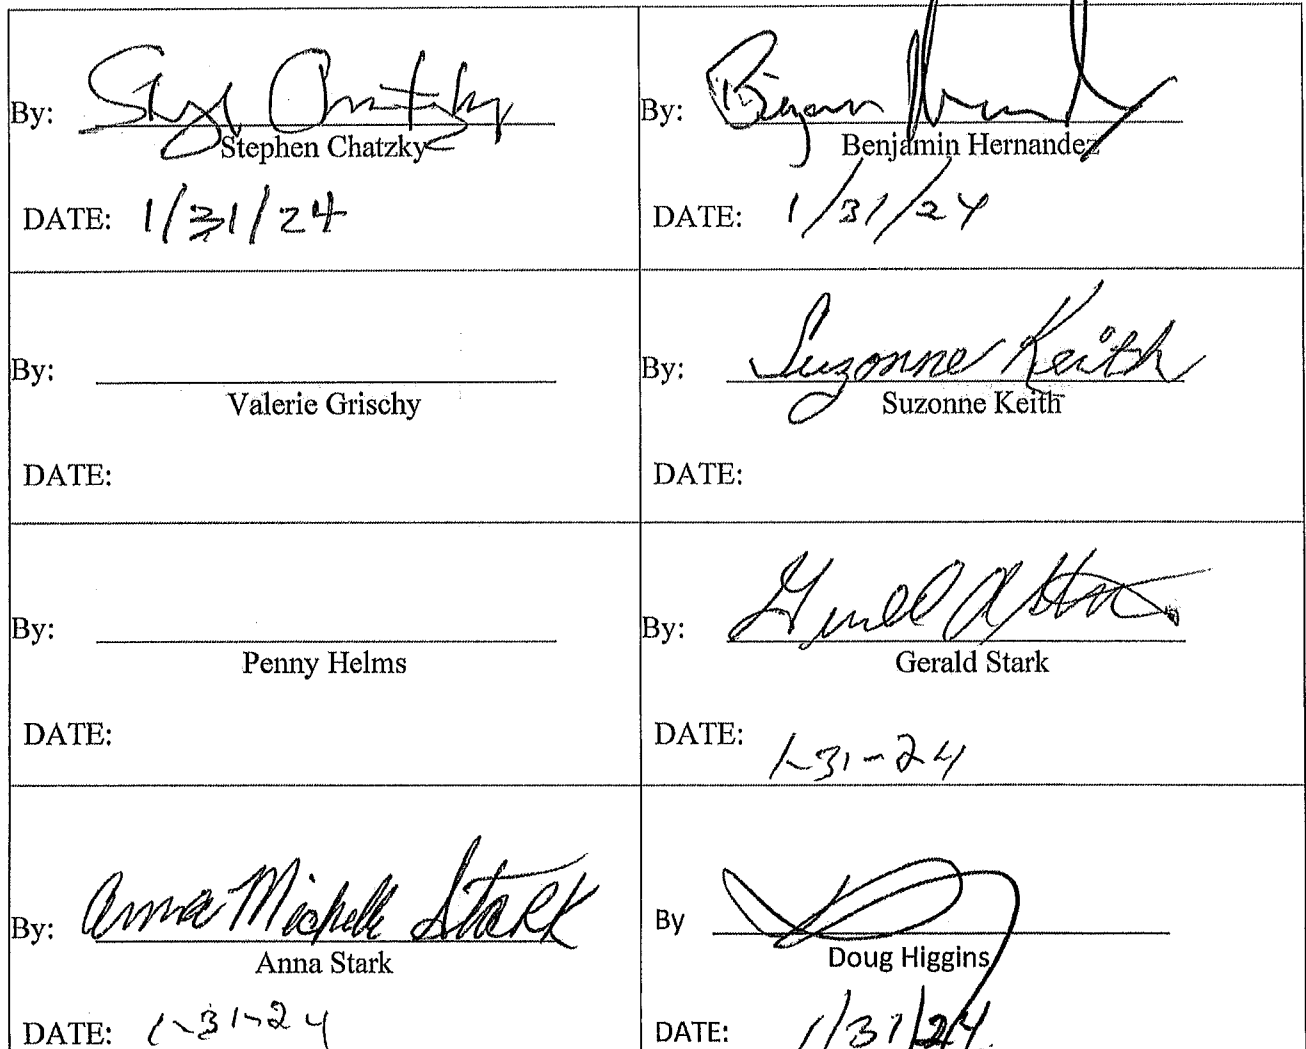 By: Stephen Chatzky
Stephen Chatzky
DATE: 1/31/24
By: Benjamin Hernandez
DATE: 1/31/24
By:
Valerie Grischy
DATE:
By: Suzonne Keith
Suzonne Keith
DATE:
By:
Penny Helms
DATE:
By: Gerald Stark
DATE: 1-31-24
By: Anna Michelle Stark
Anna Stark
DATE: 1-31-24
By
Doug Higgins
DATE: 1/31/24